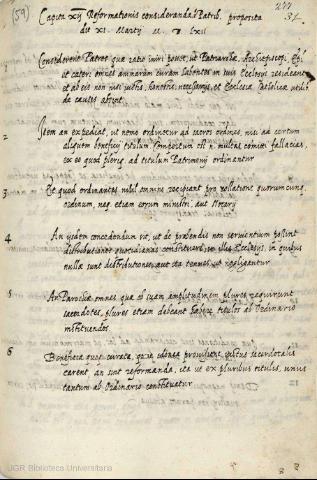 (59)
277
31.
Capita xij Reformationis consideranda à Patrib. proposita
die xi. Martij M. D Lxij
Considerent Patres quae ratio iniri possit, ut Patriarchae, Archiepiscopi, Epi,
et caeteri omnes animarum curam habentes in suis Ecclesijs resideant
et ab eis non nisi justis, honestis, necessarijs, et Ecclesiae Catholicae utilib.
de causis absint
2 Item an expediat, ut nemo ordinetur ad sacros ordines, nisi ad certum
aliquem beneficij titulum, compertum est n. multas committi fallacias,
ex eo quod plerique ad titulum Patrimonij ordinantur
3 Et quod ordinantes nihil omnino recipiant pro collatione quorumcunq
ordinum, neq etiam eorum ministri, aut Notarij
4 An ijsdem concedendum sit, ut de praebendis non servientium possint
distributiones quotidianas constituere, in illis Ecclesijs, in quibus
nullae sunt distributiones, aut ita tenues, ut negligantur
5 An Parochiae omnes quae ob suam amplitudinem plures requirunt
sacerdotes, plures etiam debeant habere titulos ab Ordinario
instituendos.
6 Beneficia quoq curata, quae idonea provisione, victus sacerdotalis
carent, an sint reformanda, ita ut ex pluribus titulis, unus
tantum ab Ordinario constituatur
UGR Biblioteca Universitaria